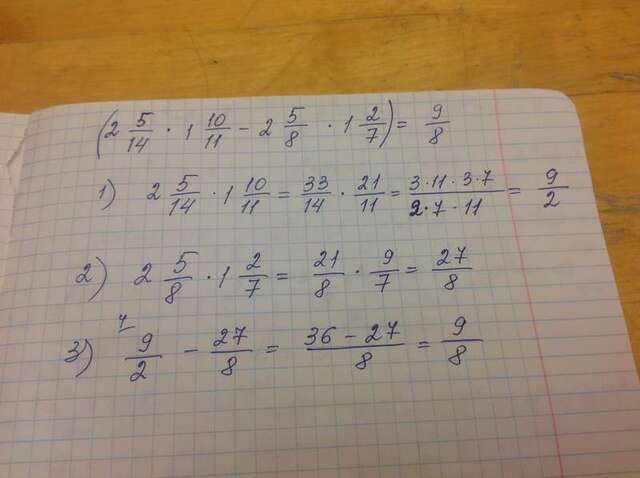 (2 5/14 · 1 10/11 − 2 5/8 · 1 2/7) = 9/8
1) 2 5/14 · 1 10/11 = 33/14 · 21/11 = 3·11·3·7/2·7·11 = 9/2
2) 2 5/8 · 1 2/7 = 21/8 · 9/7 = 27/8
3) 4 9/2 − 27/8 = 36−27/8 = 9/8